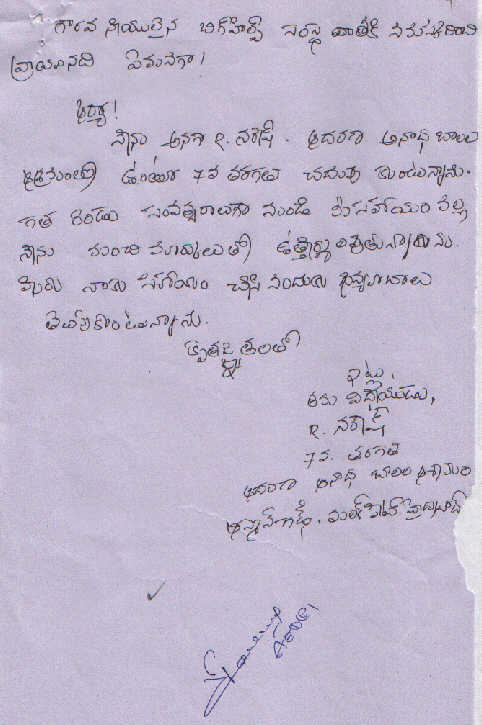 గౌరవ నీయులైన బిగ్‌హెల్ప్ సంస్థ వారికి నమస్కరించి
వ్రాయునది ఏమనగా!
ఆర్య!
నేను అనగా ఓ. నరేష్. ఆదరణ అనాధ బాలల
ఆశ్రమంలో ఉంటూ 7వ తరగతి చదువు కుంటున్నాను.
గత రెండు సంవత్సరాలుగా నుండి మీ సహాయం వల్ల
నేను మంచి మార్కులతో ఉత్తీర్ణు అవుతున్నాను.
మీరు నాకు సహాయం చేసి నందుకు ధన్యవాదాలు
తెలుపుకొంటున్నాను.
కృతజ్ఞతలతో
ఇట్లు,
తమ విధేయుడు,
నరేష్
7వ. తరగతి
ఆదరణ అనాధ బాలల ఆశ్రమం